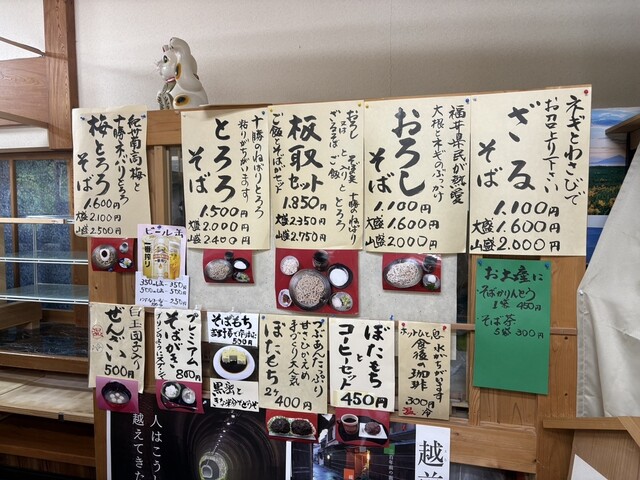 ネギとわさびで
お召上り下さい
ざる
そば
1.100円
大盛 1.600円
山盛 2.000円
福井県民が熱愛
大根とネギのぶっかけ
おろし
そば
1.100円
大盛 1.600円
山盛 2.000円
おろし
又は
ざるそば
ご飯
とろろ
板取
セット
ご飯とそばがセット
1.850円
大盛 2.350円
山盛 2.750円
十勝のねばりとろろ
粘りがちがいます
とろろ
そば
1.500円
大盛 2.000円
山盛 2.400円
紀州南高梅と
十勝ネバリとろろ
梅とろろ
そば
1.600円
大盛 2.100円
山盛 2.500円
ビール 缶
一番搾り
お土産に
そばかりんとう
1ヶ 450円
そば茶
300円
ネットリとちがいます
食後の珈琲
300円
冷
ぼたもち
と
コーヒーセット
450円
つぶあんたっぷり
甘さひかえめ
まったり大人気
ぼたもち
2ヶ
400円
そばもち
500円
黒蜜と
プレミアム
そばがき
800円
白玉団子入り
ぜんざい
500円
人はこう
越えてきた
越前